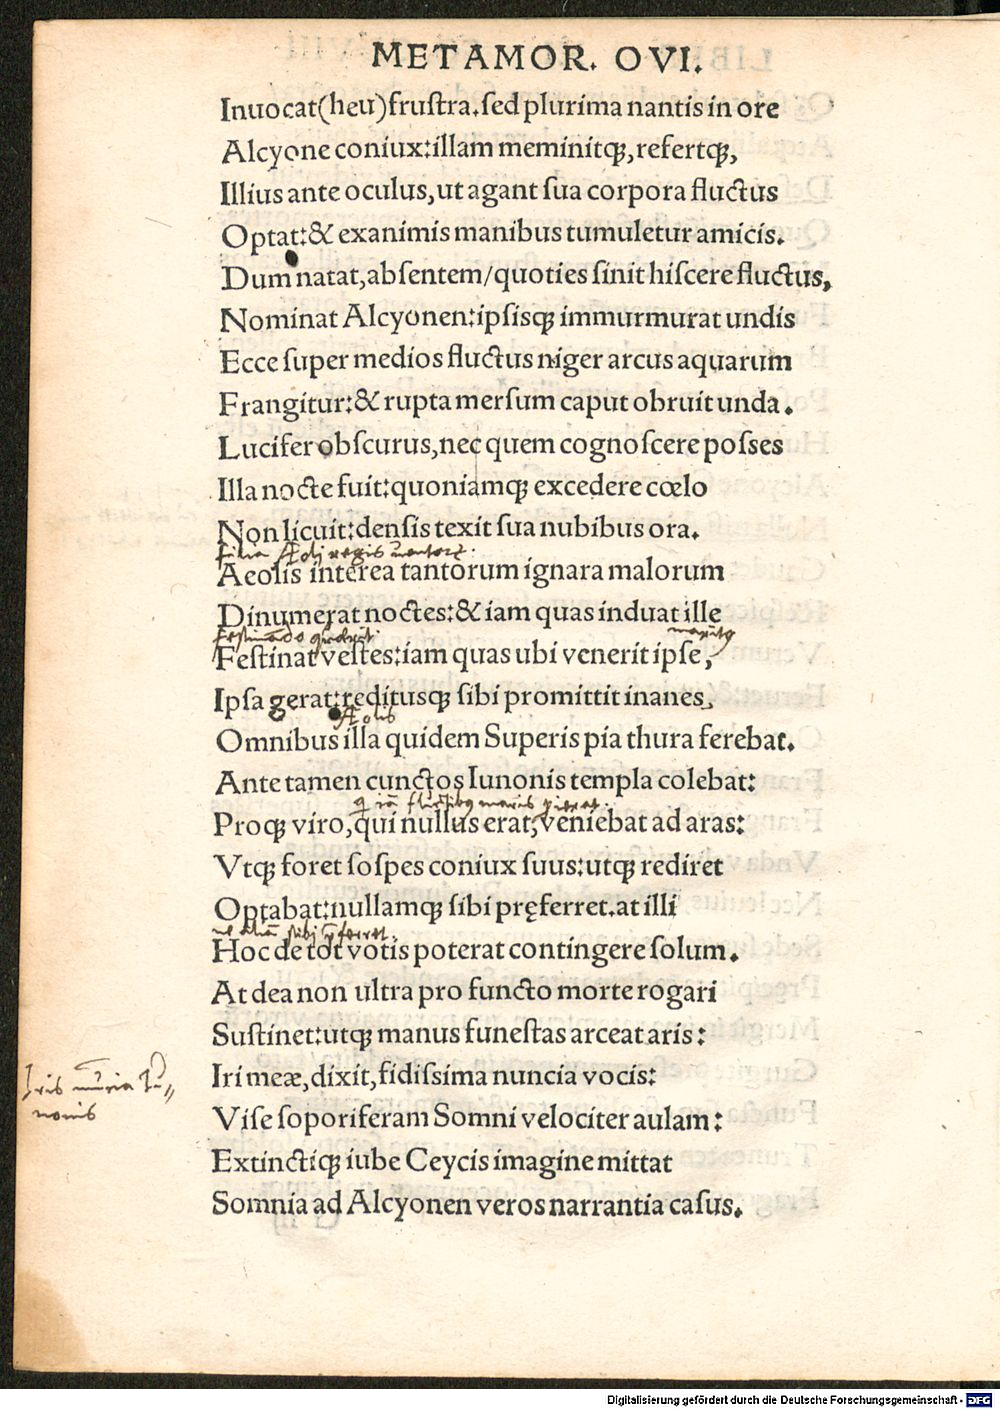 METAMOR. OVI.
Inuocat(heu)fruſtra.ſed plurima nantis in ore
Alcyone coniux:illam meminitqꝫ,refertqꝫ,
Illius ante oculus,ut agant ſua corpora fluctus
Optat:& exanimis manibus tumuletur amicis.
Dum natat,abſentem/quoties ſinit hiſcere fluctus,
Nominat Alcyonen:ipſisqꝫ immurmurat undis
Ecce ſuper medios fluctus niger arcus aquarum
Frangitur:& rupta merſum caput obruit unda.
Lucifer obſcurus,nec quem cognoſcere poſſes
Illa nocte fuit:quoniamqꝫ excedere cœlo
Non licuit:denſis texit ſua nubibus ora.
filia Æoli regis uentorꝝ.
Aeolis interea tantorum ignara malorum
Dinumerat noctes:& iam quas induat ille
Feſtinat veſtes:iam quas ubi venerit ipſe,
Ipſa gerat:reditusqꝫ ſibi promittit inanes.
Æolis
Omnibus illa quidem Superis pia thura ferebat.
Ante tamen cunctos Iunonis templa colebat:
Proqꝫ viro,qui nullus erat,veniebat ad aras:
Vtqꝫ foret ſoſpes coniux ſuus:utqꝫ rediret
Optabat:nullamqꝫ ſibi pręferret.at illi
Hoc de tot votis poterat contingere ſolum.
At dea non ultra pro functo morte rogari
Suſtinet:utqꝫ manus funeſtas arceat aris:
Iris nūcia Iu//
nonis
Iri meæ,dixit,fidiſſima nuncia vocis:
Viſe ſoporiferam Somni velociter aulam:
Extinctiqꝫ iube Ceycis imagine mittat
Somnia ad Alcyonen veros narrantia caſus.
Digitalisierung gefördert durch die Deutsche Forschungsgemeinschaft - DFG